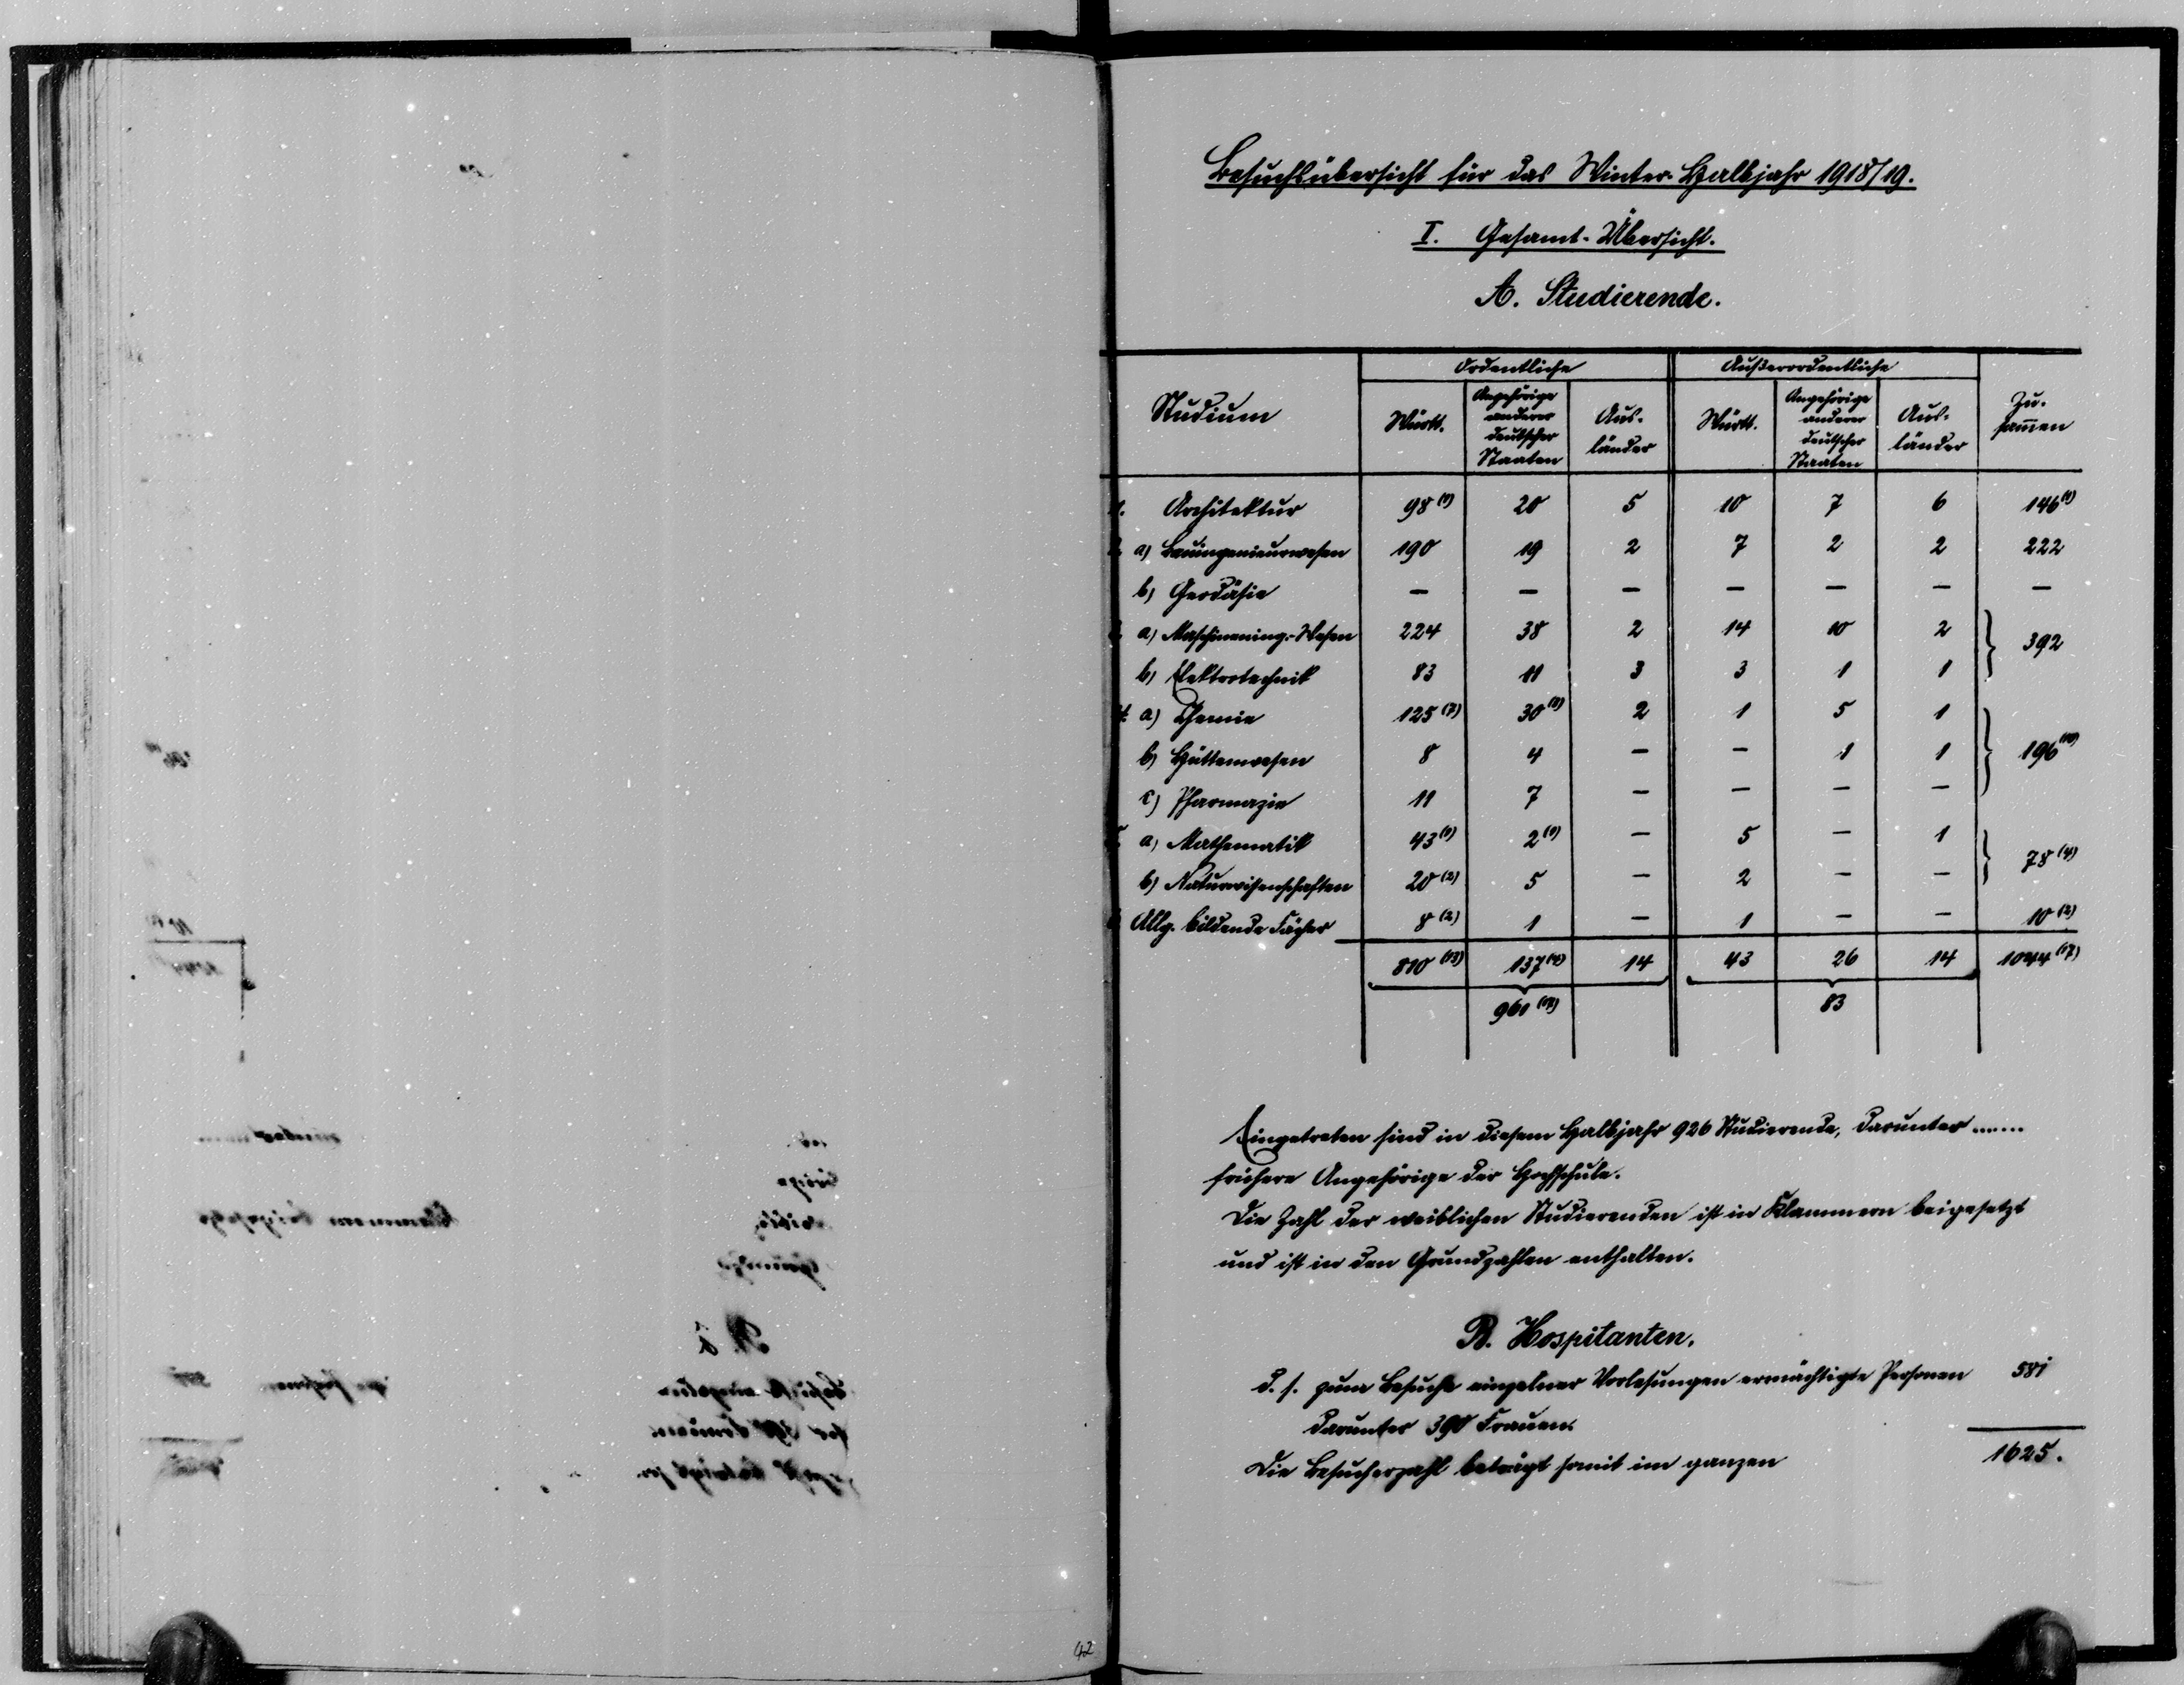 Besuchsübersicht für das Winter-Halbjahr 1918/19.
I. Gesamt-Übersicht.
A. Studierende.
Studium Ordentliche Außerordentliche Zu-
sam̅en
Württ. Angehörige
anderer
deutscher
Staaten Aus-
länder Württ. Angehörige
anderer
deutscher
Staaten Aus-
länder
1. Architektur 98 (1) 20 5 10 7 6 146 (1)
a) Bauingenieurwesen 190 19 2 7 2 2 222
b) Geodäsie — — — — — — —
a) Maschinening.-Wesen 224 38 2 14 10 2
392
b) Elektrotechnik 83 11 3 3 1 1
4. a) Chemie 125 (7) 30 (3) 2 1 5 1
b) Hüttenwesen 8 4 — — 1 1 196 (10)
c) Pharmazie 11 7 — — — —
a) Mathematik 43 (1) 2 (1) — 5 — 1
78 (4)
b) Naturwissenschaften 20 (2) 5 — 2 — —
Allg. bildende Fächer 8 (2) 1 — 1 — — 10 (2)
810 (13) 137 (4) 14 43 26 14 1044 (17)
961 83
Eingetreten sind in diesem Halbjahr 926 Studierende, darunter ......
frühere Angehörige der Hochschule.
Die Zahl der weiblichen Studierenden ist in Klammern beigesetzt
und ist in den Grundzahlen enthalten.
B. Hospitanten.
d. s. zum Besuche einzelner Vorlesungen ermächtigte Personen 581
darunter 390 Frauen.
Die Besucherzahl beträgt somit im ganzen 1625.
42